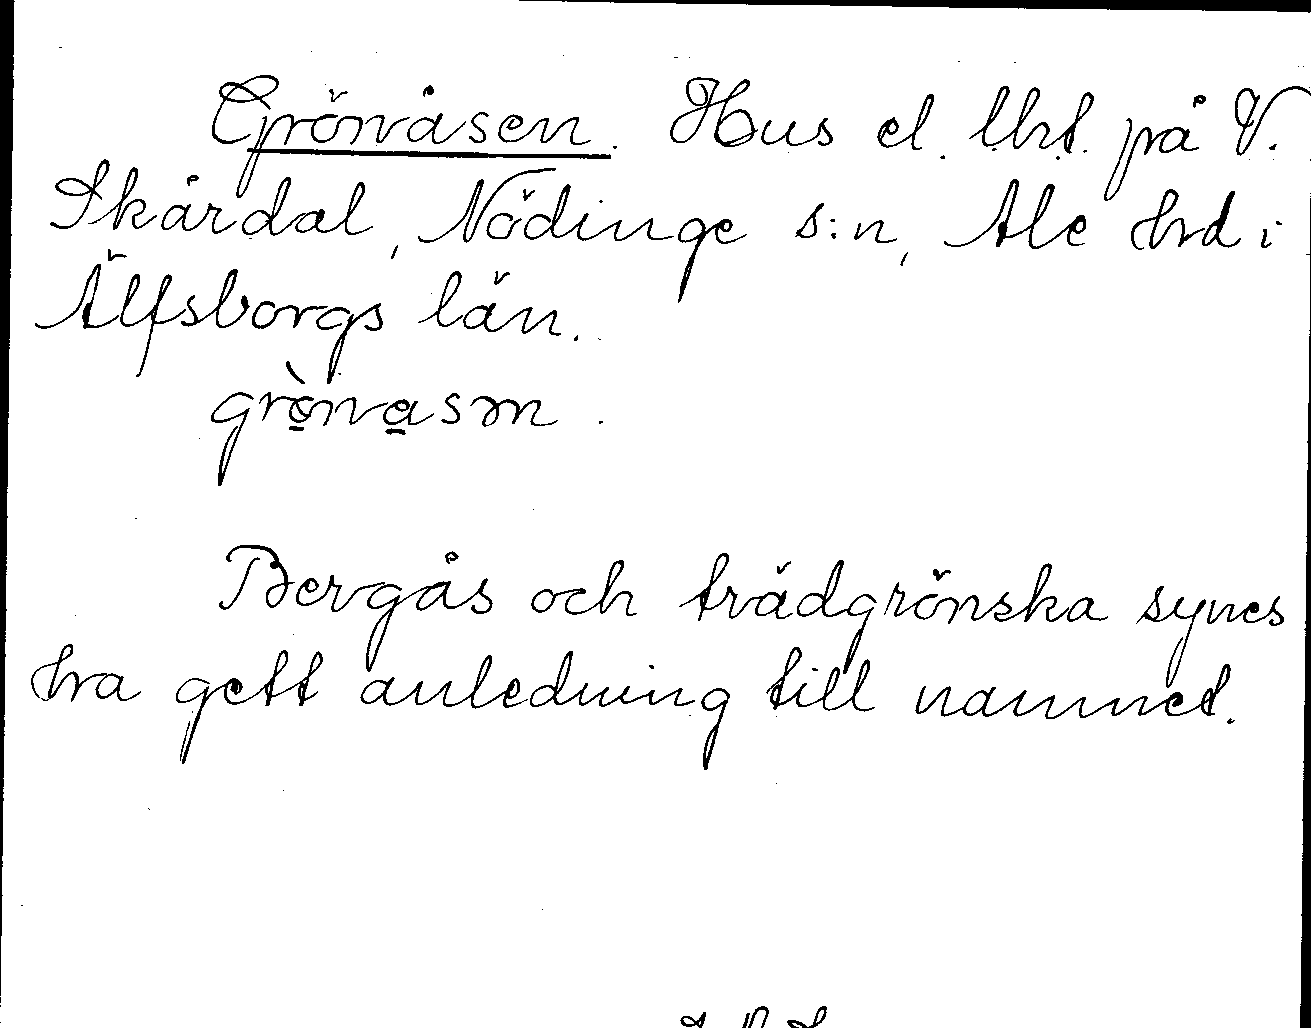 Grönåsen. Hus el. lht. på V.
Skårdal, Nödinge s:n, Ale hrd i
Älfsborgs län.
Bergås och trädgrönska synes
ha gett anledning till namnet.